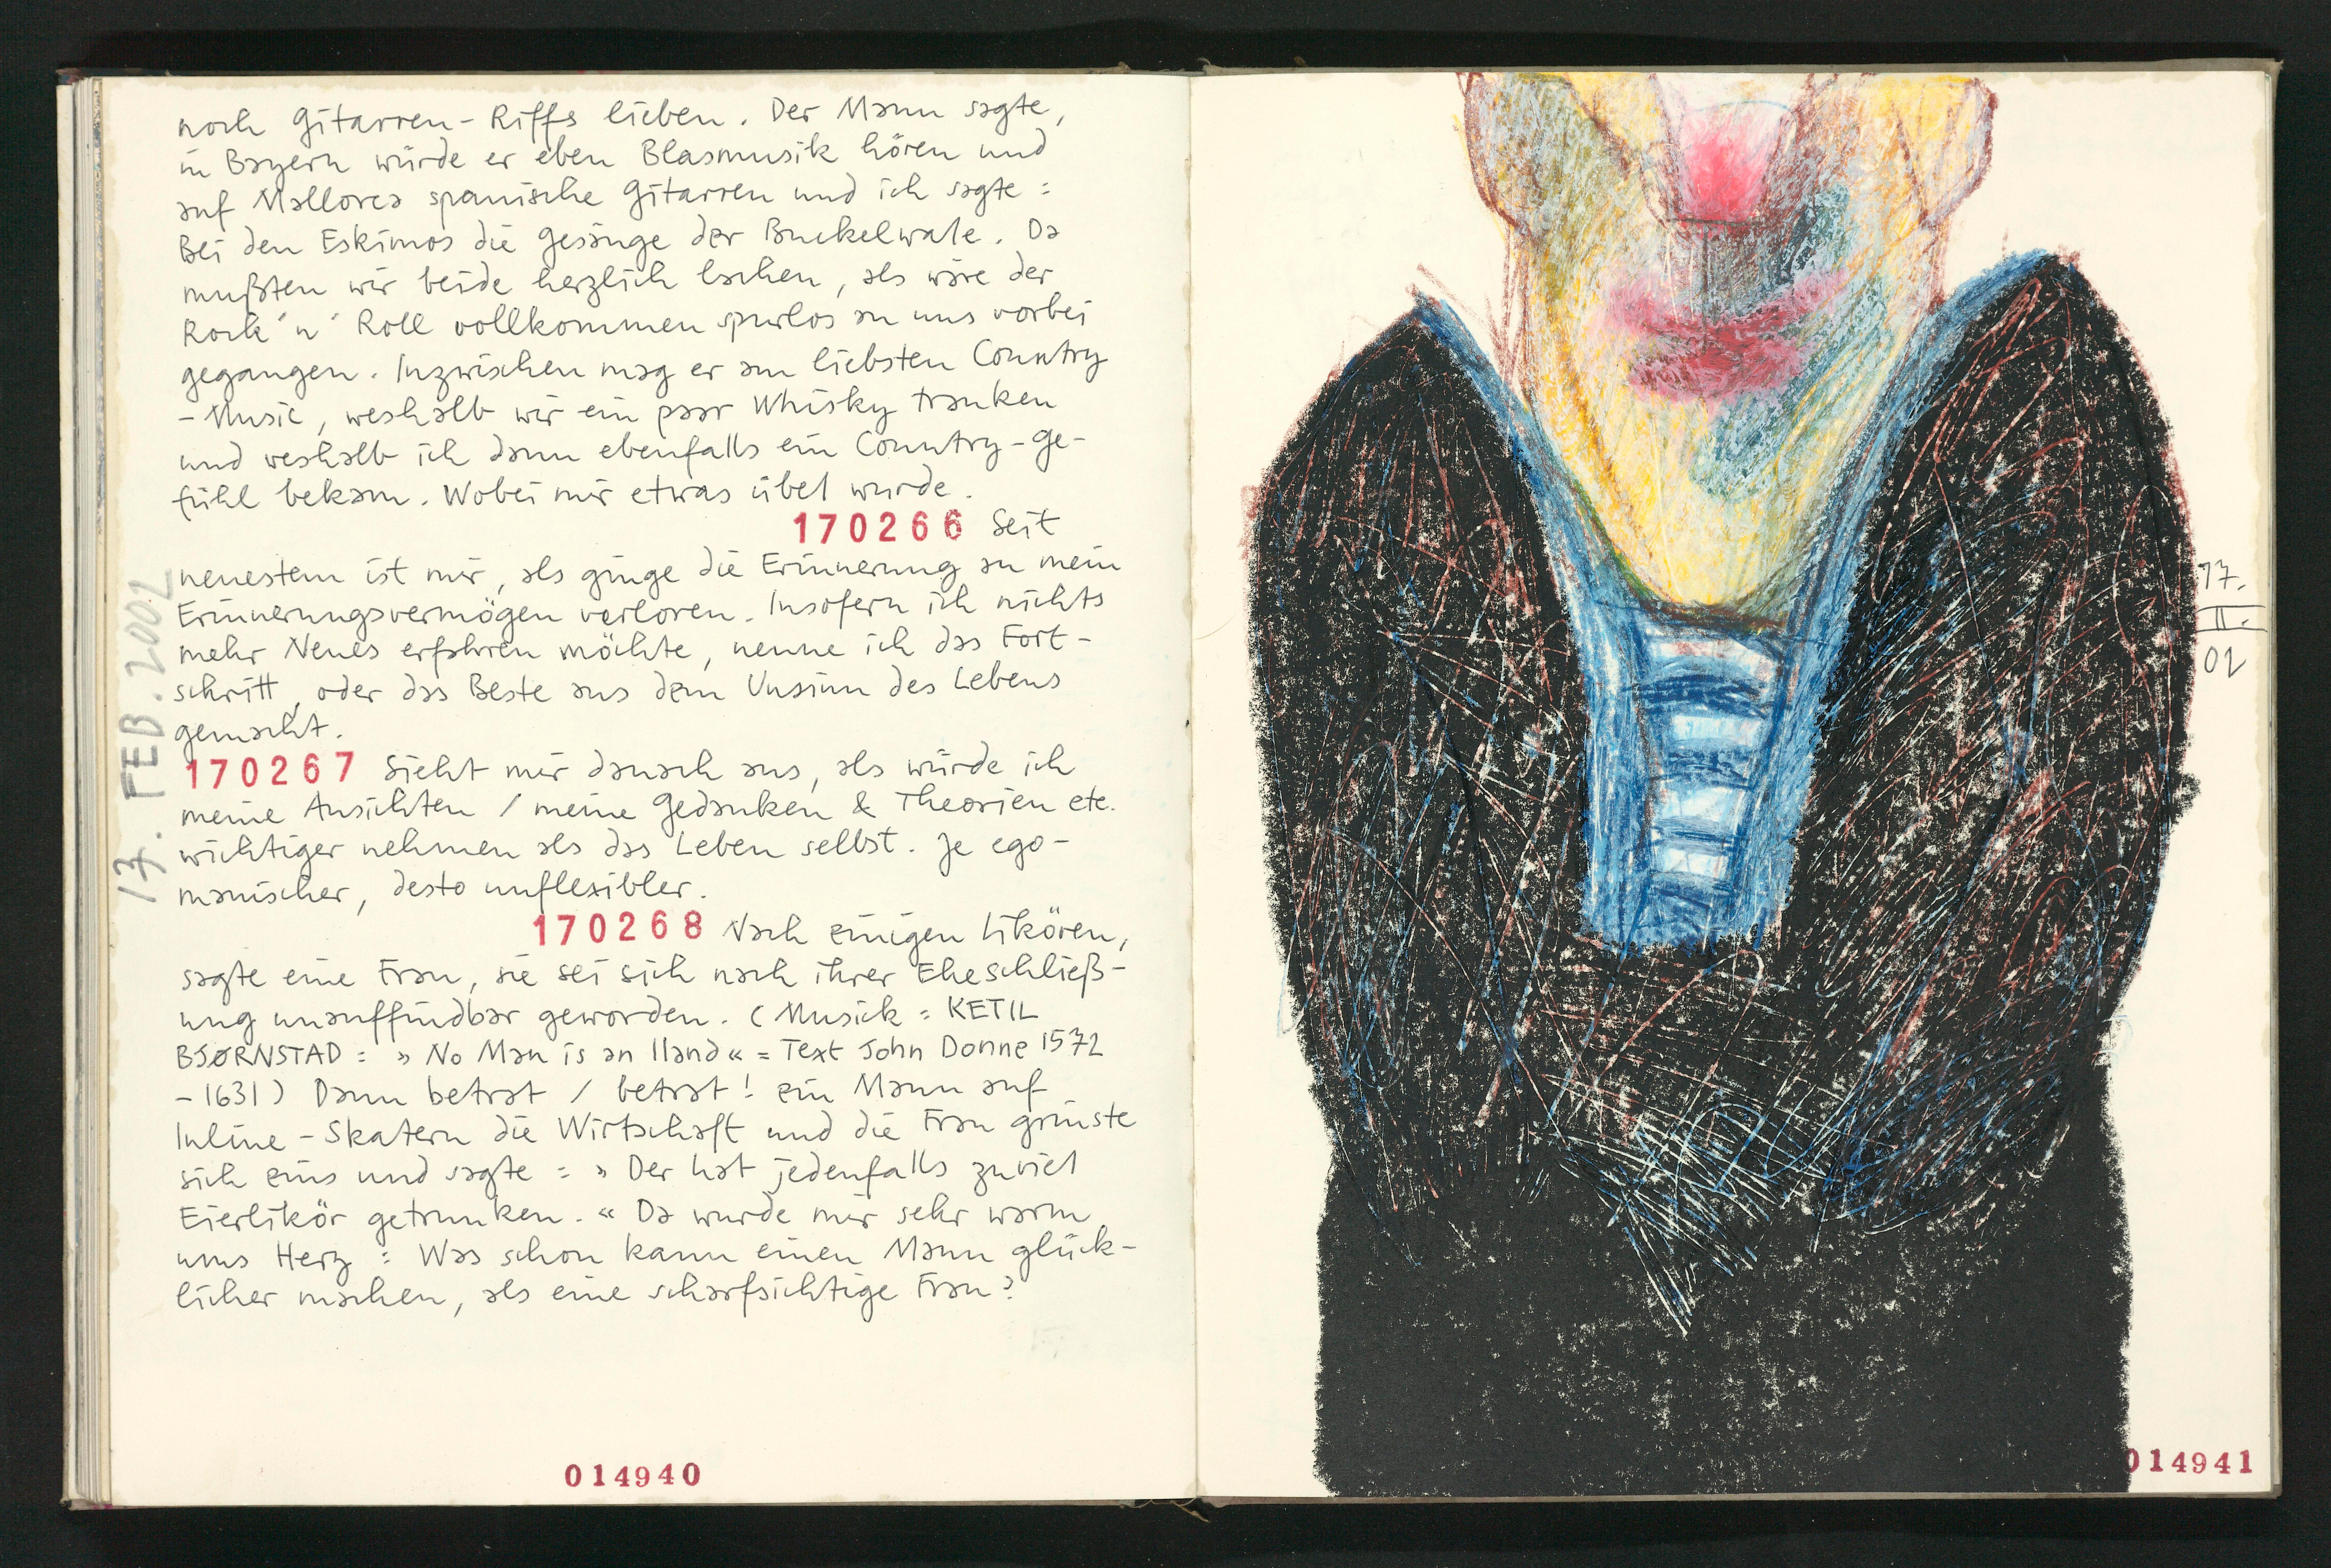 noch Gitarren-Riffs lieben. Der Mann sagte,
in Bayern würde er eben Blasmusik hören und
auf Mallorca spanische Gitarren und ich sagte:
Bei den Eskimos die Gesänge der Buckelwale. Da
mußten wir beide herzlich lachen, als wäre der
Rock'n' Roll vollkommen spurlos an uns vorbei
gegangen. Inzwischen mag er am liebsten Country
-Music, weshalb wir ein paar Whisky tranken
und weshalb ich dann ebenfalls ein Country-Ge-
fühl bekam. Wobei mir etwas übel wurde.
170266 Seit
neuestem ist mir, als ginge die Erinnerung an mein
Erinnerungsvermögen verloren. Insofern ich nichts
mehr Neues erfahren möchte, nenne ich das Fort-
schritt, oder das Beste aus dem Unsinn des Lebens
gemacht.
170267 Sieht mir danach aus, als würde ich
meine Ansichten / meine Gedanken & Theorien etc.
wichtiger nehmen als das Leben selbst. Je ego-
manischer, desto unflexibler.
170268 Nach einigen Likören,
sagte eine Frau, sie sei sich nach ihrer Eheschließ-
ung unauffindbar geworden. (Musick: KETIL
BJØRNSTAD: »No Man is an Iland« = Text John Donne 1572
-1631) Dann betrat / betrat! ein Mann auf
Inline-Skatern die Wirtschaft und die Frau grinste
sich eins und sagte: »Der hat jedenfalls zuviel
Eierlikör getrunken.« Da wurde mir sehr warm
ums Herz: Was schon kann einen Mann glück-
licher machen, als eine scharfsichtige Frau?
17. FEB. 2002
014940
17.
II.
02
014941